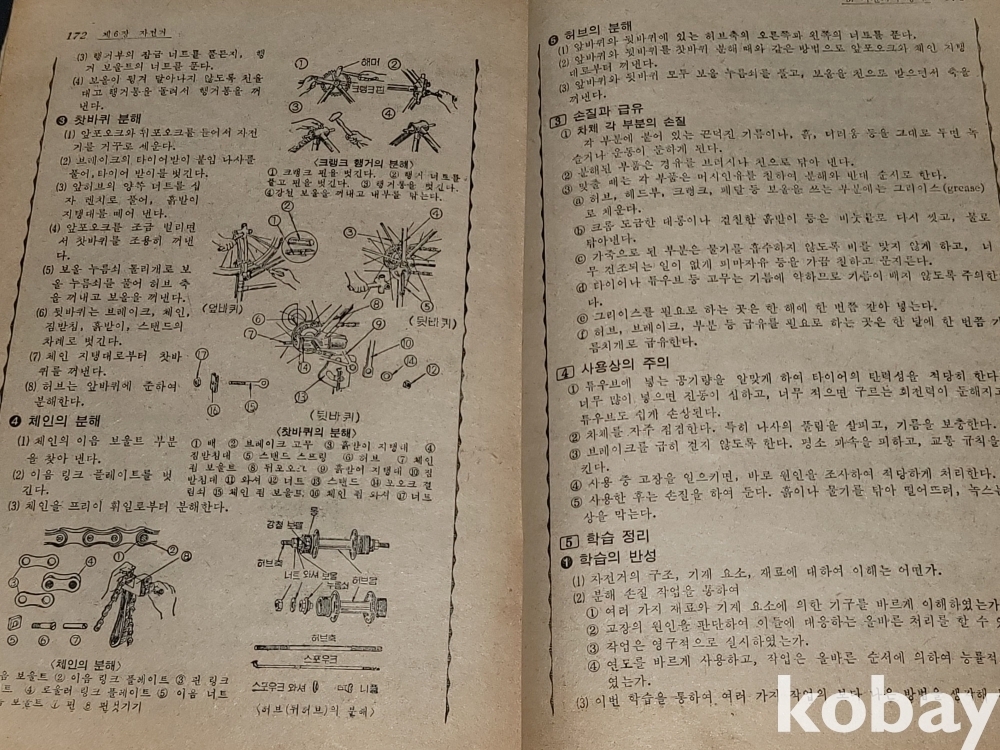 172 제6장 자전거
(3) 행거부의 잠금 너트를 푼든지, 행
거 보울트의 너트를 푼다.
(4) 보울이 튕겨 달아나지 않도록 천을
대고 행거통을 돌려서 행거통을 꺼
낸다.
❸ 찻바퀴 분해
(1) 앞포오크와 뒤포오크를 들어서 자전
거를 거구로 세운다.
(2) 브레이크의 타이어받이 붙임 나사를
풀어, 타이어 받이를 벗긴다.
(3) 앞허브의 양쪽 너트를 십
자 렌치로 풀어, 흙받이
지탱대를 떼어 낸다.
(4) 앞포오크를 조금 벌리면
서 찻바퀴를 조용히 꺼낸
다.
(5) 보울 누름쇠 돌리개로 보
울 누름쇠를 풀어 허브 축
을 꺼내고 보울을 꺼낸다.
(6) 뒷바퀴는 브레이크, 체인,
짐받침, 흙받이, 스탠드의
차례로 벗긴다.
(7) 체인 지탱대로부터 찻바
퀴를 꺼낸다.
(8) 허브는 앞바퀴에 준하여
분해한다.
❹ 체인의 분해
(1) 체인의 이음 보울트 부분
을 찾아 낸다.
(2) 이음 링크 플레이트를 벗
긴다.
(3) 체인을 프리이 휘일로부터 분해한다.
① ② ③ ④
해머
크랭크핀
〈크랭크 행거의 분해〉
① 크랭크 핀을 벗긴다. ② 행거 너트를
풀고 핀을 벗긴다. ③ 행거통을 벗긴다.
④ 강철 보울을 꺼내고 내부를 닦는다.
(앞바퀴)
(뒷바퀴)
(뒷바퀴)
〈찻바퀴의 분해〉
① 배 ② 브레이크 고무 ③ 흙받이 지탱대 ④
짐받침대 ⑤ 스탠드 스프링 ⑥ 허브 ⑦ 체인
핌 보울트 ⑧ 뒤포오크 ⑨ 흙받이 지탱대 ⑩ 짐
받침대 ⑪ 와셔 ⑫ 너트 ⑬ 스탠드 ⑭ 포오크 걸
림쇠 ⑮ 체인 핌 보울트 ⑯ 체인 핌 와셔 ⑰ 너트
통
강철 보울
허브축
너트 와셔 보울
누름쇠
허브몸
허브축
스포우크
스포우크 와셔 니플
〈허브(뒤허브)의 분해〉
〈체인의 분해〉
음 보울트 ② 이음 링크 플레이트 ③ 핀 링크
트 ④ 로울러 링크 플레이트 ⑤ 이음 너트
보울트 ⑦ 핀 ⑧ 핀 벗기기
❺ 허브의 분해
(1) 앞바퀴와 뒷바퀴에 있는 허브축의 오른쪽과 왼쪽의 너트를 푼다.
(2) 앞바퀴와 뒷바퀴를 찻바퀴 분해 때와 같은 방법으로 앞포오크와 체인 지탱
대로부터 꺼낸다.
(3) 앞바퀴와 뒷바퀴 모두 보울 누름쇠를 풀고, 보울을 천으로 받으면서 축을
꺼낸다.
3 손질과 급유
① 차체 각 부분의 손질
각 부분에 붙어 있는 끈덕진 기름이나, 흙, 더러움 등을 그대로 두면 녹
슬거나 운동이 둔하게 된다.
② 분해된 부품은 경유를 브러시나 천으로 닦아 낸다.
③ 맞출 때는 각 부분은 머시인유를 친하여 분해와 반대 순서로 한다.
ⓐ 허브, 헤드부, 크랭크, 페달 등 보울을 쓰는 부분에는 그리이스(grease)
로 채운다.
ⓑ 크롬 도금한 대롱이나 결칠한 흙받이 등은 비눗물로 다시 씻고, 물로
닦아낸다.
ⓒ 가죽으로 된 부분은 물기를 흡수하지 않도록 비를 맞지 않게 하고, 너
무 건조되는 일이 없게 피마자유 등을 가끔 칠하고 문지른다.
ⓓ 타이어나 튜우브 등 고무는 기름에 약하므로 기름이 배지 않도록 주의한
다.
ⓔ 그리이스를 필요로 하는 곳은 한 해에 한 번쯤 갈아 넣는다.
ⓕ 허브, 브레이크, 부분 등 급유를 필요로 하는 곳은 한 달에 한 번쯤
름치게로 급유한다.
4 사용상의 주의
① 튜우브에 넣는 공기량을 알맞게 하여 타이어의 탄력성을 적당히 한다
너무 많이 넣으면 진동이 심하고, 너무 적으면 구르는 회전력이 둔해지고
튜우브도 쉽게 손상된다.
② 차체를 자주 점검한다. 특히 나사의 풀림을 살피고, 기름을 보충한다.
③ 브레이크를 급히 걷지 않도록 한다. 평소 과속을 피하고, 교통 규칙을
킨다.
④ 사용 중 고장을 일으키면, 바로 원인을 조사하여 적당하게 처리한다.
⑤ 사용한 후는 손질을 하여 둔다. 흙이나 물기를 닦아 밀어뜨려, 녹스는
상을 막는다.
5 학습 정리
❶ 학습의 반성
(1) 자전거의 구조, 기계 요소, 재료에 대하여 이해는 어떤가.
(2) 분해 손질 작업을 통하여
① 여러 가지 재료와 기계 요소에 의한 기구를 바르게 이해하였는가
② 고장의 원인을 판단하여 이들에 대응하는 올바른 처리를 할 수
③ 작업은 영구적으로 실시하였는가.
④ 연모를 바르게 사용하고, 작업은 올바른 순서에 의하여 능률적
였는가.
(3) 이번 학습을 통하여 여러 가지
kobay